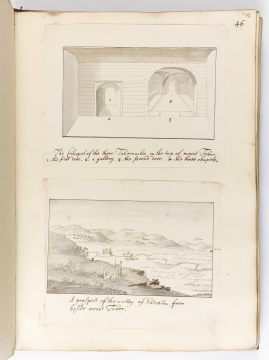 46
4
4
3
The Chapel of the three Tabernacles on the top of mount Tabor
1. the first dore. 2. a gallery. 3. the second dore. 4. the three chapels.
A prospect of the valley of Esdraelon from
beside mount Tabor.